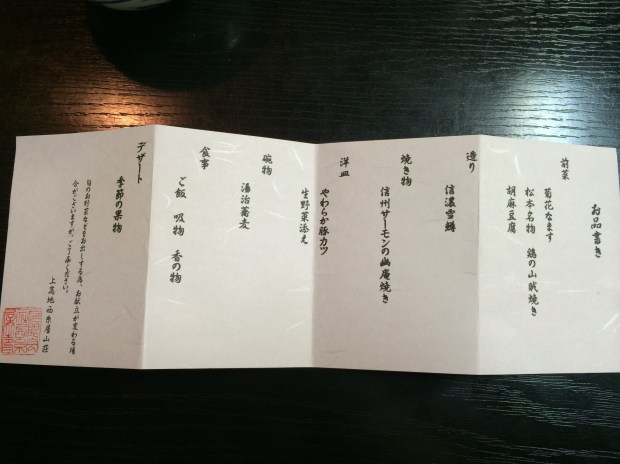 お品書き
前菜
菊花なます
松本名物 鶏の山賊焼き
胡麻豆腐
造り
信濃雪鱒
焼き物
信州サーモンの幽庵焼き
洋皿
やわらか豚カツ
生野菜添え
碗物
湯治蕎麦
食事
ご飯 吸物 香の物
デザート
季節の果物
旬のお野菜などをお出しする為、お献立が変わる場
合がございますが、ご了承ください。
上高地西糸屋山荘